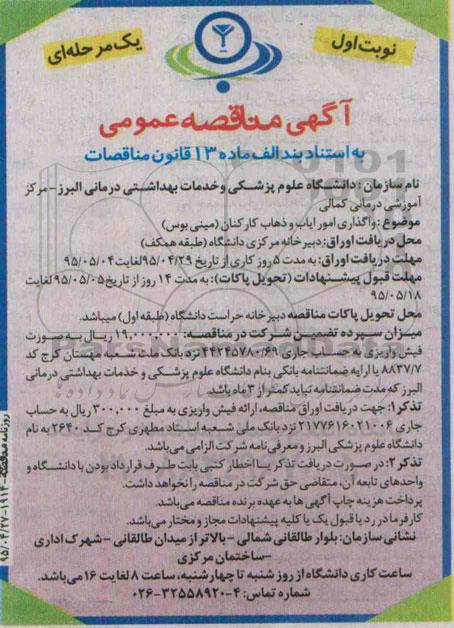 نوبت اول
یک مرحله‌ای
آگهی مناقصه عمومی
به استناد بند الف ماده ۱۳ قانون مناقصات
نام سازمان: دانشگاه علوم پزشکی و خدمات بهداشتی درمانی البرز - مرکز
آموزشی درمانی کمالی
موضوع: واگذاری امور ایاب و ذهاب کارکنان (مینی بوس)
محل دریافت اوراق: دبیرخانه مرکزی دانشگاه (طبقه همکف)
مهلت دریافت اوراق: به مدت ۵ روز کاری از تاریخ ۹۵/۰۴/۲۹ لغایت ۹۵/۰۵/۰۴
مهلت قبول پیشنهادات (تحویل پاکات): به مدت ۱۴ روز از تاریخ ۹۵/۰۵/۰۵ لغایت
۹۵/۰۵/۱۸
محل تحویل پاکات مناقصه دبیرخانه حراست دانشگاه (طبقه اول) میباشد.
میزان سپرده تضمین شرکت در مناقصه: ۱۹,۰۰۰,۰۰۰ ریال به صورت
فیش واریزی به حساب جاری ۴۴۲۴۵۷۸۰/۶۹ نزد بانک ملت شعبه مهستان کرج کد
۸۸۳۷/۷ یا ارایه ضمانتنامه بانکی بنام دانشگاه علوم پزشکی و خدمات بهداشتی درمانی
البرز که مدت ضمانتنامه نباید کمتر از ۳ ماه باشد.
تذکر۱: جهت دریافت اوراق مناقصه، ارائه فیش واریزی به مبلغ ۳۰۰,۰۰۰ ریال به حساب
جاری ۲۱۷۷۶۱۶۰۲۱۰۰۶ نزد بانک ملی شعبه استاد مطهری کرج کد ۲۶۴۰ به نام
دانشگاه علوم پزشکی البرز و معرفی نامه شرکت الزامی می‌باشد.
تذکر۲: در صورت دریافت تذکر یا اخطار کتبی بابت طرف قرارداد بودن با دانشگاه و
واحدهای تابعه آن، متقاضی حق شرکت در مناقصه را نخواهد داشت.
پرداخت هزینه چاپ آگهی ها به عهده برنده مناقصه می‌باشد.
کارفرما در رد یا قبول یک یا کلیه پیشنهادات مجاز و مختار می‌باشد.
نشانی سازمان: بلوار طالقانی شمالی - بالاتر از میدان طالقانی - شهرک اداری
- ساختمان مرکزی
ساعت کاری دانشگاه از روز شنبه تا چهارشنبه، ساعت ۸ لغایت ۱۶ می‌باشد.
شماره تماس: ۴-۳۲۵۵۸۹۲۰-۰۲۶
روزنامه مناقصه-۱۹۱۴-۹۵/۰۴/۲۷